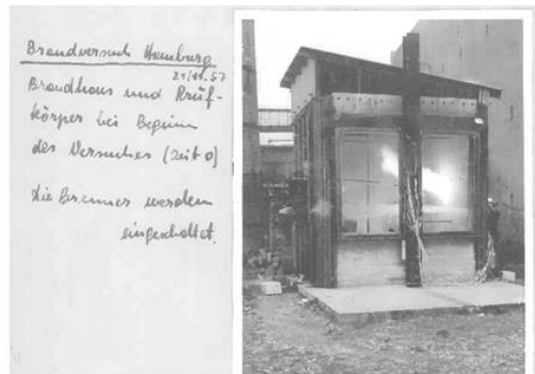 Brandversuch Hamburg
21/11.57
Brandhaus und Prüf-
körper bei Beginn
des Versuches (Zeit 0)
Die Brenner werden
eingeschaltet.